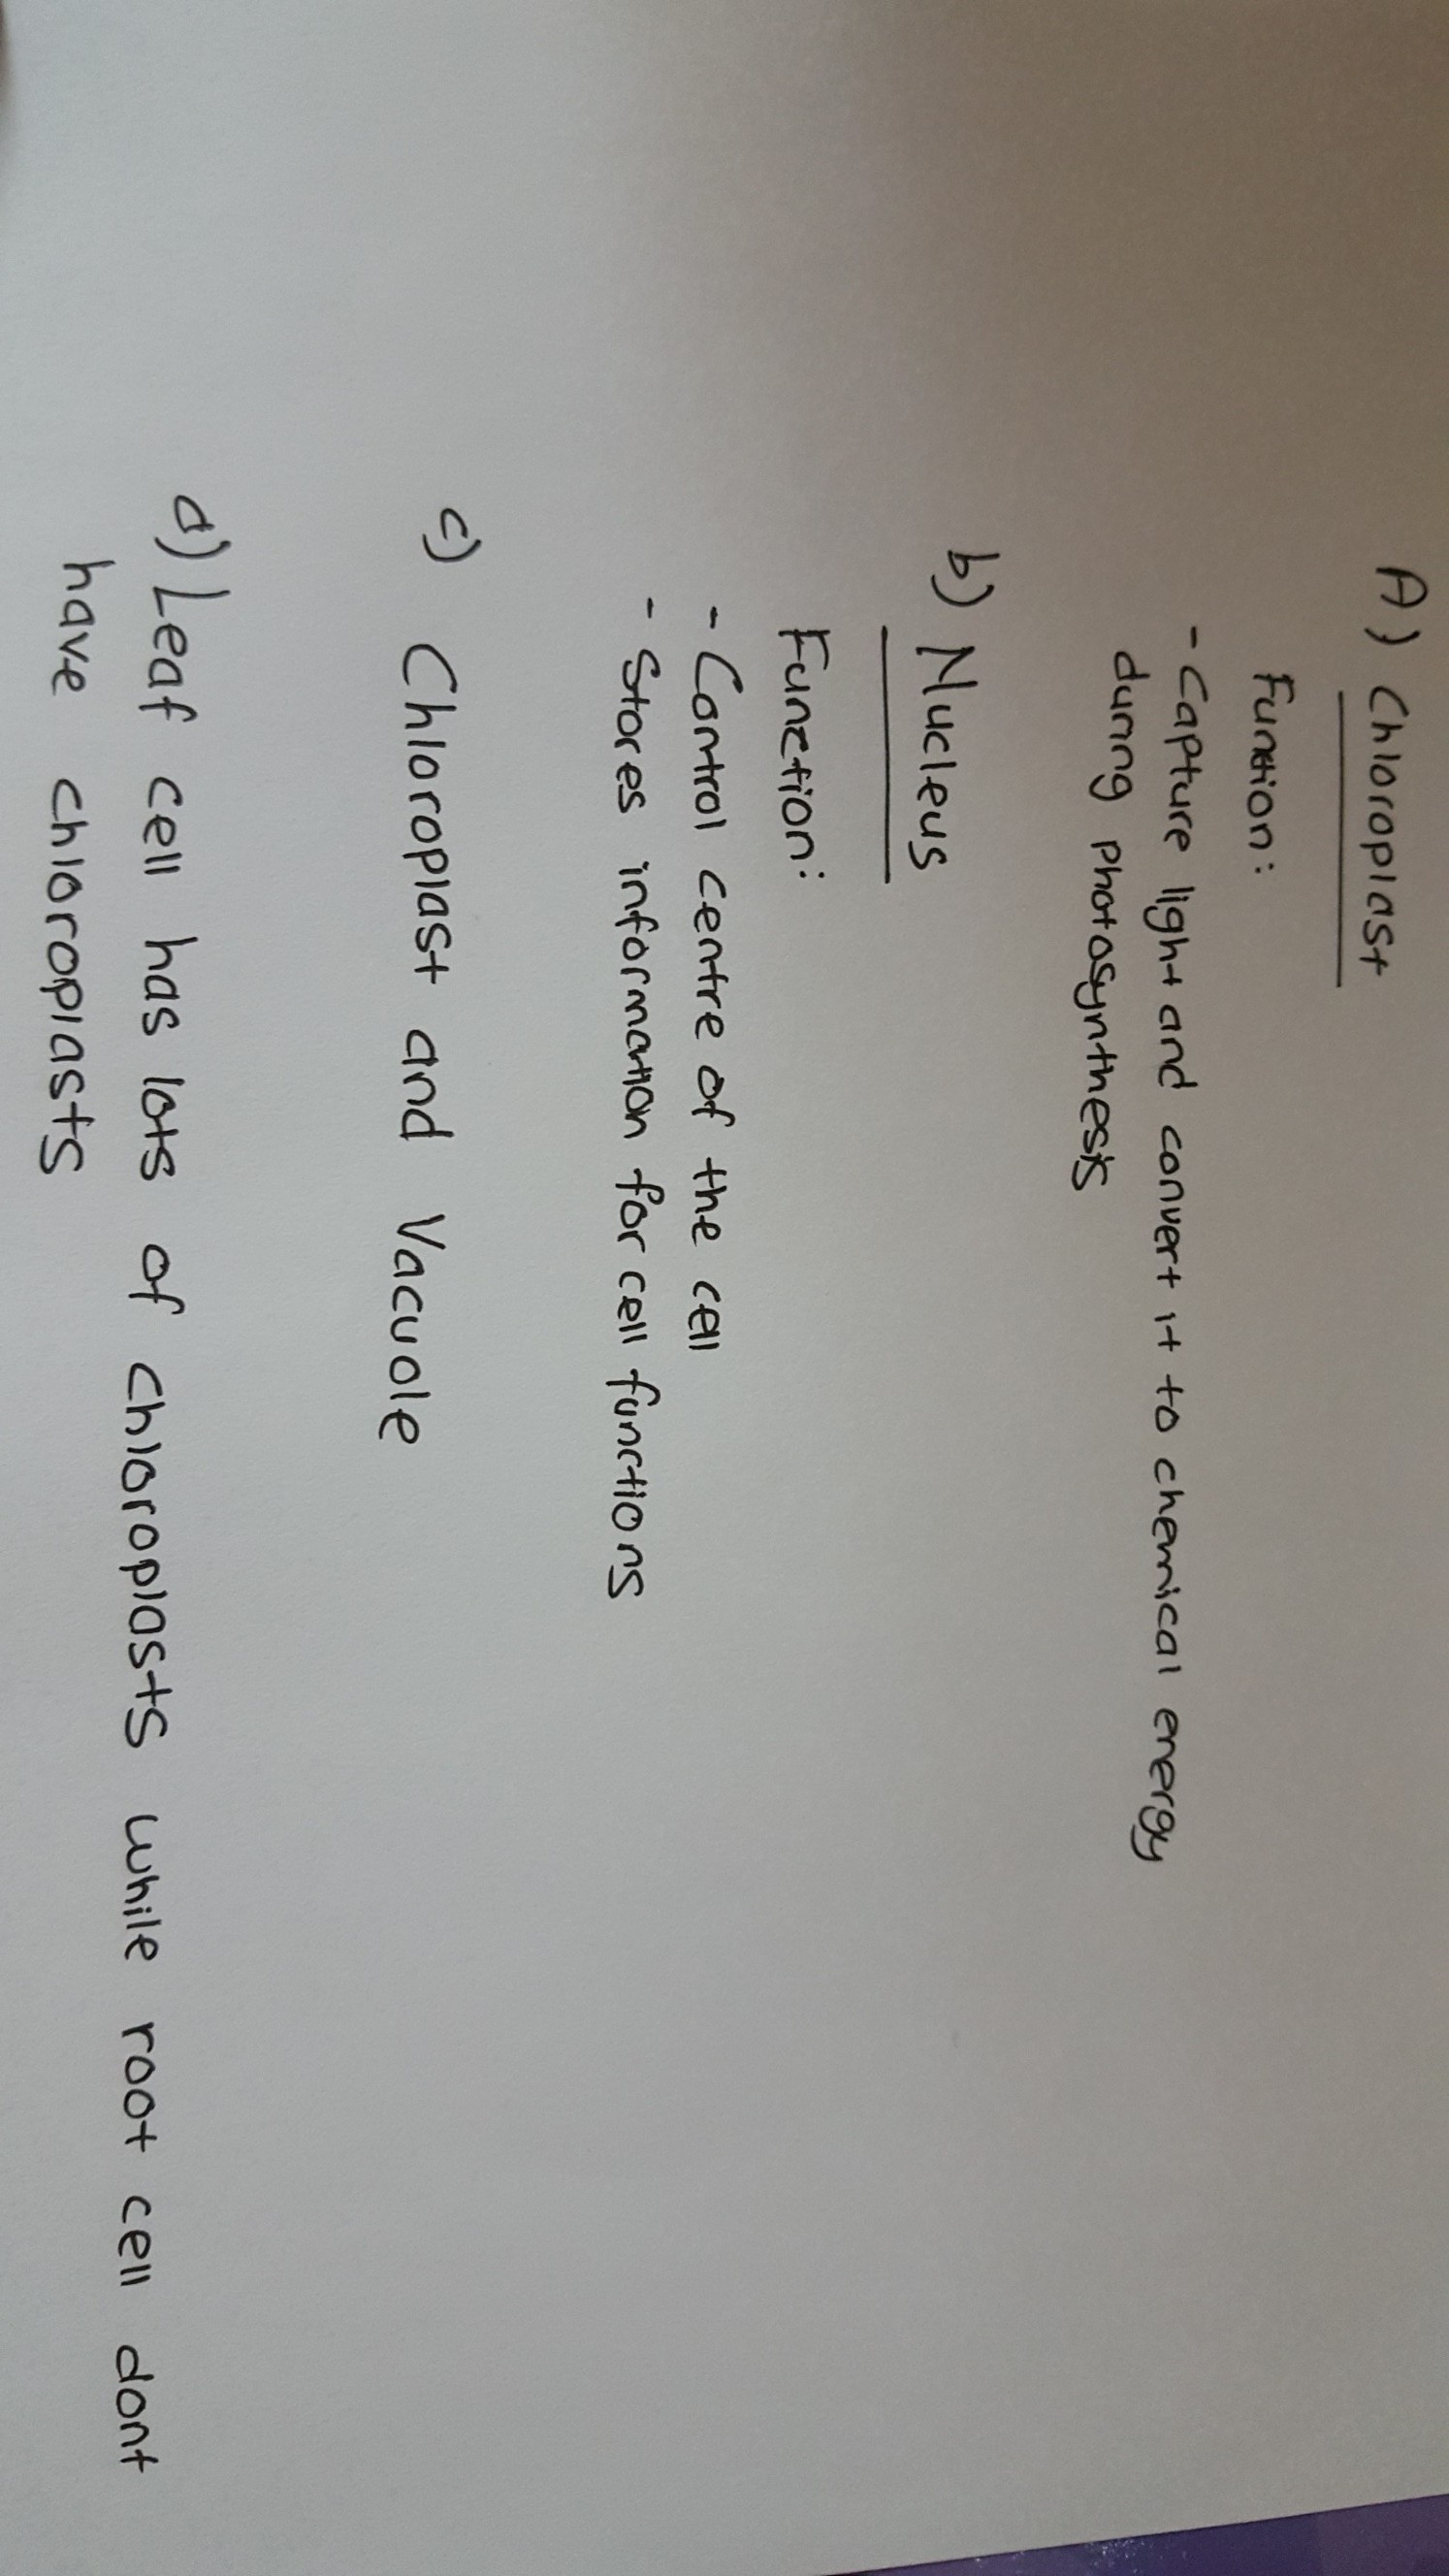 A) Chloroplast
Function:
- Capture light and convert it to chemical energy
during photosynthesis
b) Nucleus
Function:
- Control centre of the cell
- Stores information for cell functions
c) Chloroplast and Vacuole
d) Leaf cell has lots of chloroplasts while root cell dont
have chloroplasts